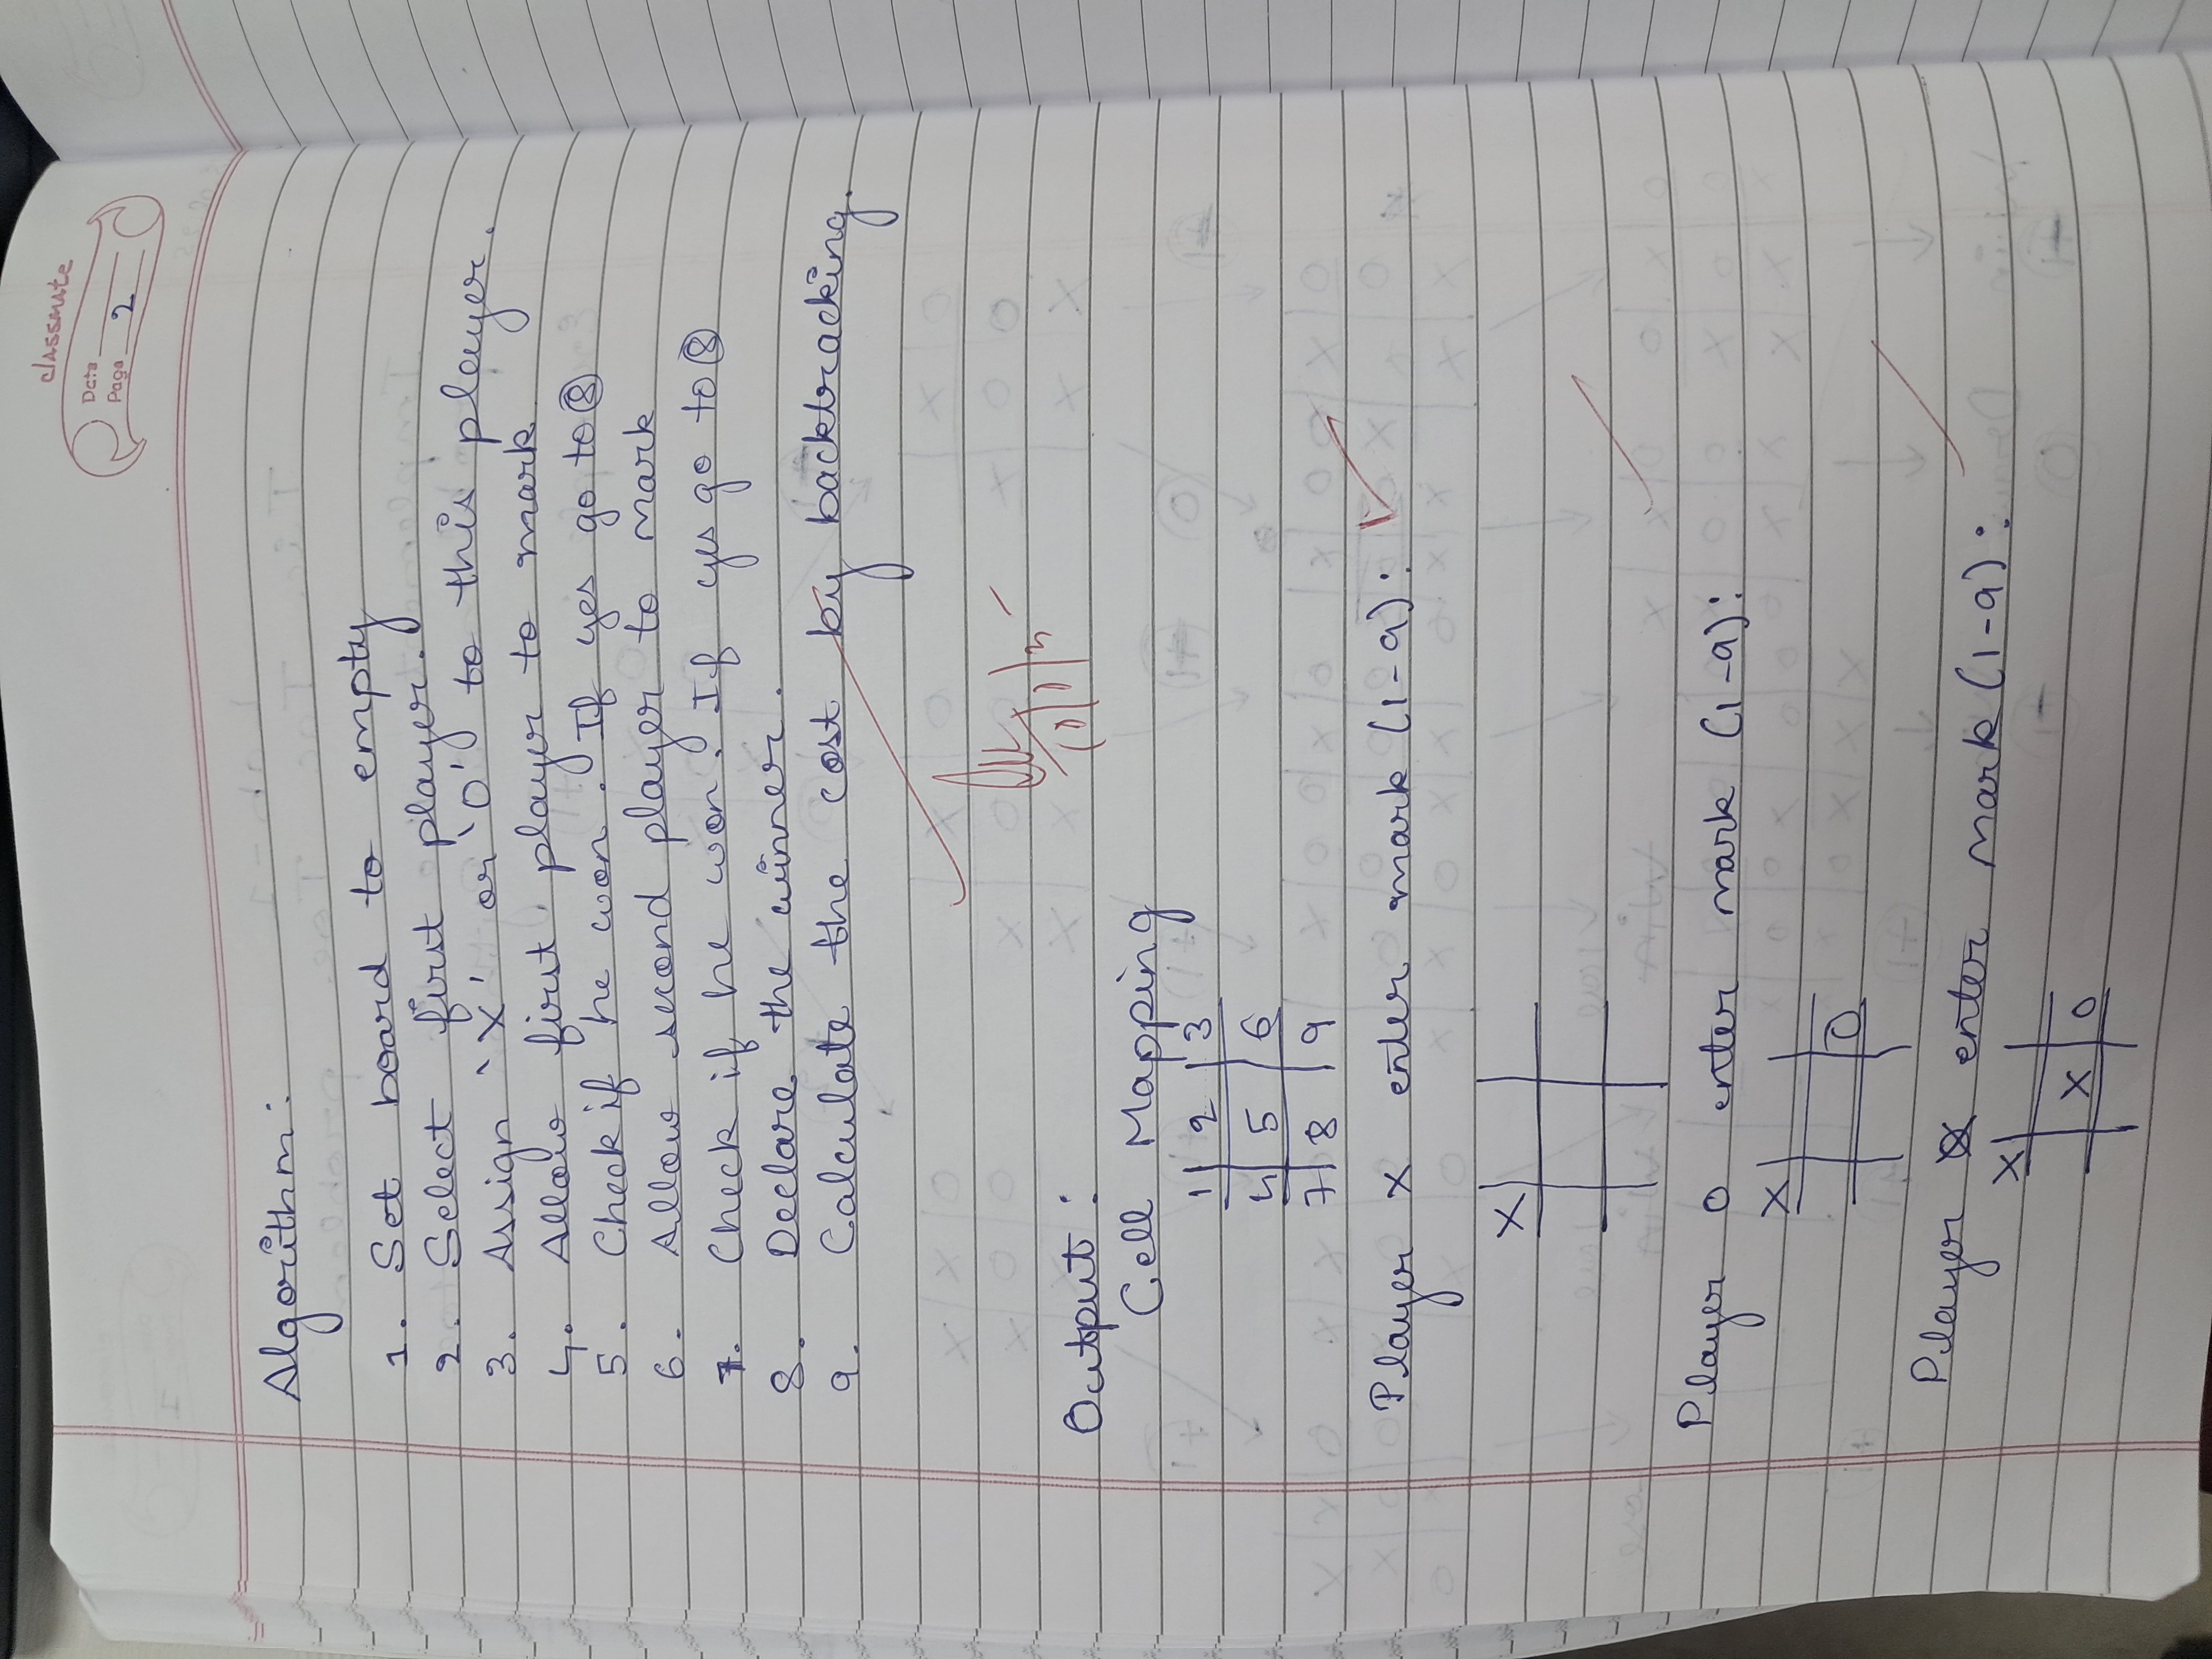 classmate
Date
Page 2
Algorithm:
1. Set board to empty
2. Select first player.
3. Assign 'X' or 'O' to this player.
4. Allow first player to mark
5. Check if he won. If yes go to 8
6. Allow second player to mark
7. Check if he won. If yes go to 8
8. Declare the winner.
9. Calculate the cost by backtracking.
Output:
Cell Mapping
1 | 2 | 3
4 | 5 | 6
7 | 8 | 9
Player X enter mark (1-9):
X
Player O enter mark (1-9):
X
O
Player X enter mark (1-9):
X
X O